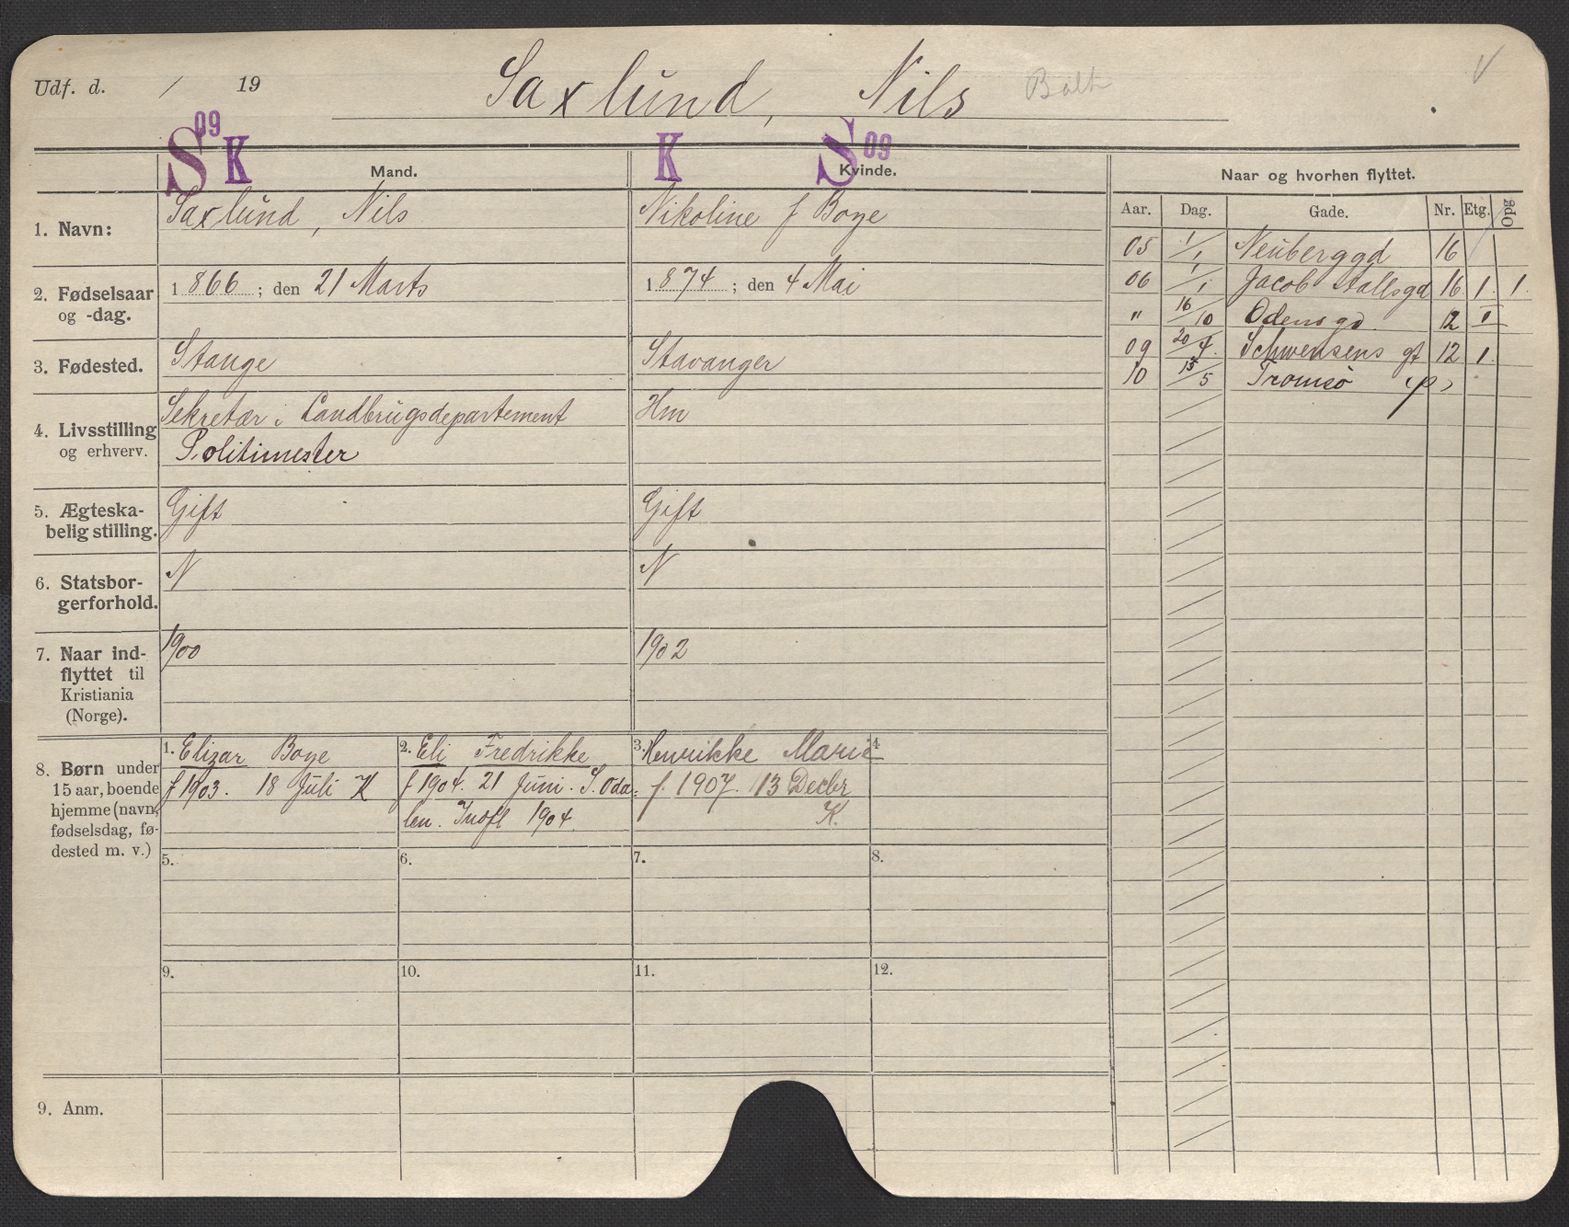 Udf. d. / 19
Saxlund, Nils
S 09 K
K S 09
Mand.
Kvinde.
Naar og hvorhen flyttet.
Aar. Dag. Gade. Nr. Etg. Opg
1. Navn:
Saxlund, Nils
Nikoline f Boye
2. Fødselsaar
og -dag.
1866; den 21 Marts
1874; den 4 Mai
3. Fødested.
Stange
Stavanger
4. Livsstilling
og erhverv.
Sekretær i Landbrugsdepartement
Politimester
Hm
5. Ægteska-
belig stilling.
Gift
Gift
6. Statsbor-
gerforhold.
N
N
7. Naar ind-
flyttet til
Kristiania
(Norge).
1900
1902
8. Børn under
15 aar, boende
hjemme (navn,
fødselsdag, fø-
dested m. v.)
1. Elizar Boye
f 1903. 18 Juli K
2. Eli Fredrikke
f 1904. 21 Juni. S. Oda=
len. Indfl 1904.
3. Henrikke Marie
f. 1907. 13 Decbr
K.
4
5.
6.
7.
8.
9.
10.
11.
12.
9. Anm.
05 1/1 Neuberggd 16
06 1/1 Jacob Aallsgd 16 1. 1.
" 16/10 Odensgd. 12 II
09 20/4. Schwensens gt 12 1.
10 15/5 Tromsø